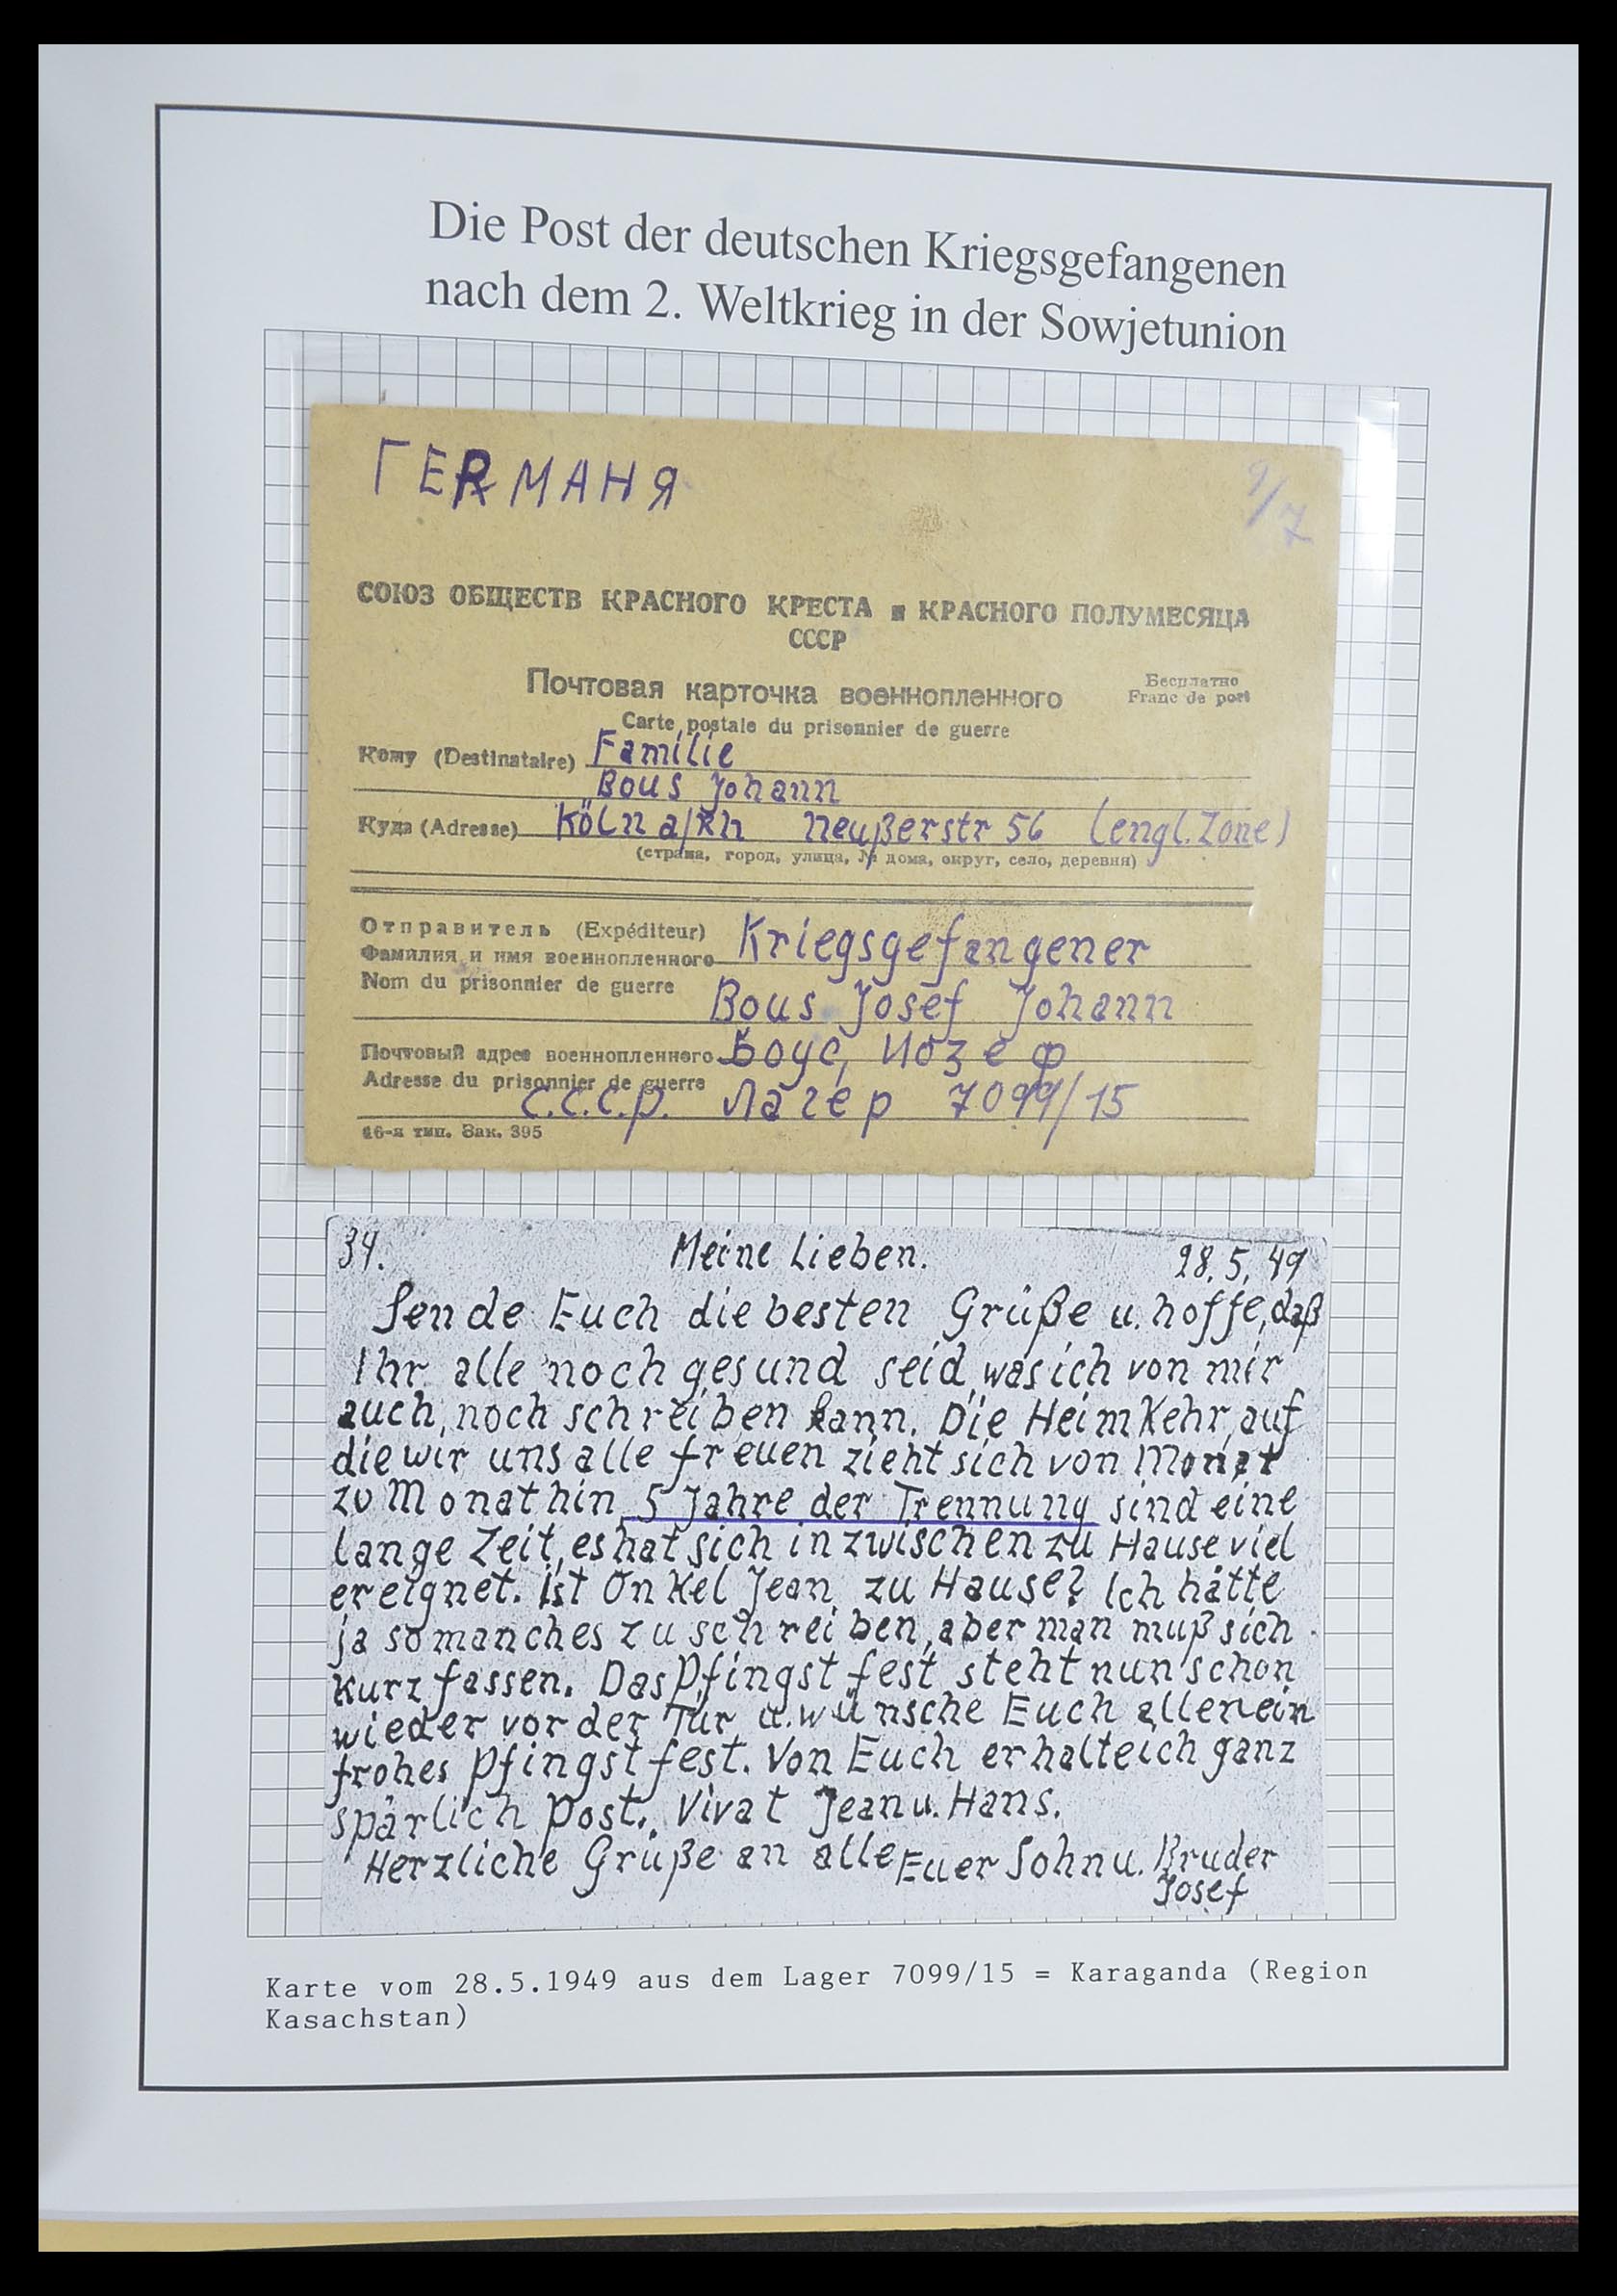 Die Post der deutschen Kriegsgefangenen
nach dem 2. Weltkrieg in der Sowjetunion
ГЕRМАНЯ
9/7
СОЮЗ ОБЩЕСТВ КРАСНОГО КРЕСТА и КРАСНОГО ПОЛУМЕСЯЦА
СССР
Почтовая карточка военнопленного
Бесплатно
Franc de port
Carte postale du prisonnier de guerre
Кому (Destinataire) Familie
Bous Johann
Куда (Adresse) Köln a/Rh Neußerstr 56 (engl. Zone)
(страна, город, улица, № дома, округ, село, деревня)
Отправитель (Expéditeur)
Фамилия и имя военнопленного Kriegsgefangener
Nom du prisonnier de guerre
Bous Josef Johann
Почтовый адрес военнопленного Боус, Иозеф
Adresse du prisonnier de guerre
С.С.С.р. Лагер 7099/15
16-я тип. Зак. 395
34. Meine Lieben. 28.5.49
Sende Euch die besten Grüße u. hoffe, daß
Ihr alle noch gesund seid, was ich von mir
auch, noch schreiben kann. Die Heimkehr, auf
die wir uns alle freuen zieht sich von Monat
zu Monat hin, 5 Jahre der Trennung sind eine
lange Zeit, es hat sich inzwischen zu Hause viel
ereignet. Ist Onkel Jean zu Hause? Ich hätte
ja so manches zu schreiben, aber man muß sich
kurz fassen. Das Pfingstfest steht nun schon
wieder vor der Tür u. wünsche Euch allen ein
frohes Pfingstfest. Von Euch erhalte ich ganz
spärlich Post. Vivat Jean u. Hans.
Herzliche Grüße an alle Euer Sohn u. Bruder
Josef
Karte vom 28.5.1949 aus dem Lager 7099/15 = Karaganda (Region
Kasachstan)